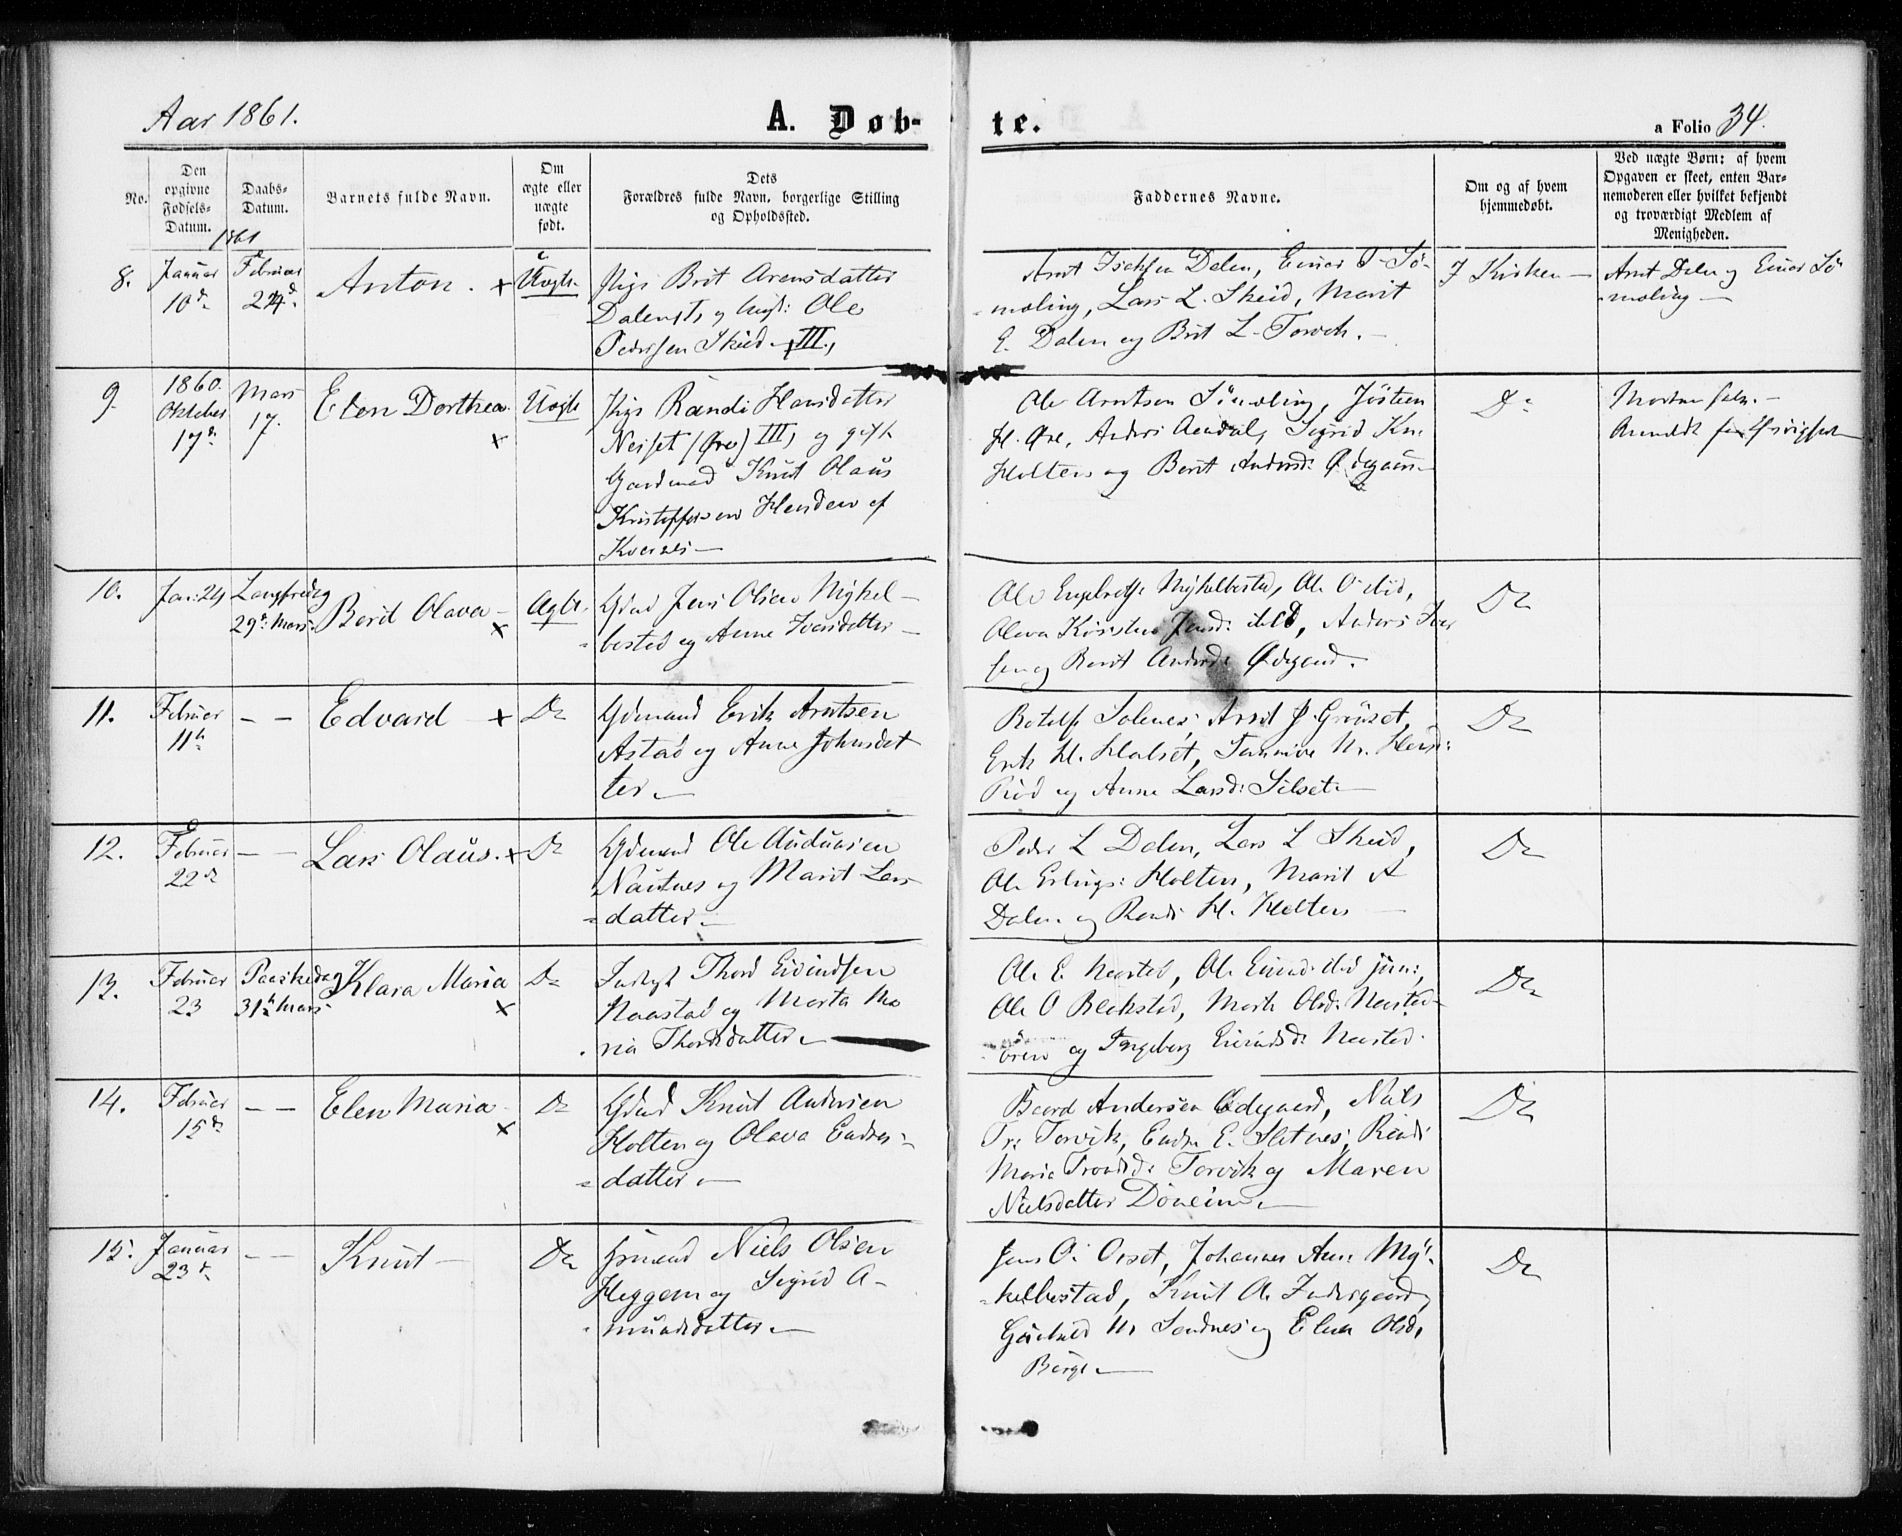 Aar 1861.
A. Døb-
te.
a Folio 34.
No.
Den
opgivne
Fødsels-
Datum.
Daabs-
Datum.
Barnets fulde Navn.
Om
ægte eller
uægte
født.
Dets
Forældres fulde Navn, borgerlige Stilling
og Opholdssted.
Faddernes Navne.
Om og af hvem
hjemmedøbt.
Ved uægte Børn: af hvem
Opgaven er skeet, enten Bar-
nemoderen eller hvilket bekjendt
og troværdigt Medlem af
Menigheden.
1861
8.
Januar
10d.
Februar
24d.
Anton. x
Uægte
Pige Brit Arensdatter
Ole
Pedersen Skeid III,
Arnt Dalen, Einar
Lars L. Skeid, Marit
E. Dalen og Brit L. Torvik.
I Kirken
Arnt Dalen og Einar Sø
møling
9.
1860.
Oktober
17d.
Mars
17.
Elen Dorthea.
x
Uægte
Pige Randi Hansdatter
Neiset (Øre) III, og gift
Gardmad Knut Olaus
Kristoffersen Henden af
Kvernes
Ole Arntsen Sømøling, Jøsten
H. Øre, Anders Aandal, Sigrid Kn.
Holten og Berit Andersd: Ødegaard
Do
Moderen selv.
10.
Jan: 24
Langfredag
29d: Mars.
Berit Olava
x
Ægte
Gdmd Jens Olsen Mykel-
bostad og Anne Iversdatter
Ole Myklebostad, Ole O. ibid,
Olava Jensd: ibid, Anders Iver
sen og Berit Andersd: Ødegaard.
Do
11.
Februar
11te
- -
Edvard x
Do
Gdmand Erik Arntsen
Astad og Anne Johnsdat
ter
Botolf Solnes, Arnt P. Grønset,
Erik H. Halset,
Rød og Anne Larsd: Silset
Do
12.
Februar
22de
- -
Lars Olaus. x
Do
Gdmand Ole Audunsen
Nautnes og Marit Lars
=datter
Peder L Dalen, Lars L Skeid,
Ole Erlings: Holten, Marit A
Dalen og Randi H. Holten
Do
13.
Februar
23
Paaskedag
31te Mars
Klara Maria
x
Do
Thord Eivindsen
Naastad og Marta Ma
ria Thordsdatter
Ole E. Naastad, Ole Eivinds: ibid jun:,
Ole O Blekstad, Marta Olsd: Naastad-
øren og Ingeborg Eivindsd: Naastad.
Do
14.
Februar
15de
- -
Elen Maria
x
Do
Gdmd Knut Andersen
Holten og Olava Endres-
=datter
Baard Andersen Ødegaard, Niels
Tr: Torvik, Endre E. Slitnes, Randi
Maria Trondsd: Torvik og Maren
Nielsdatter
Do
15.
Januar
23d.
- -
Knut
Do
Niels Olsen
Heggem og Sigrid A-
mundsdatter
Jens O. Orset, Johannes Arn: My-
kelbostad, Knut O. Indergaard,
Sandnes og Elen Olsd.
Berge
Do